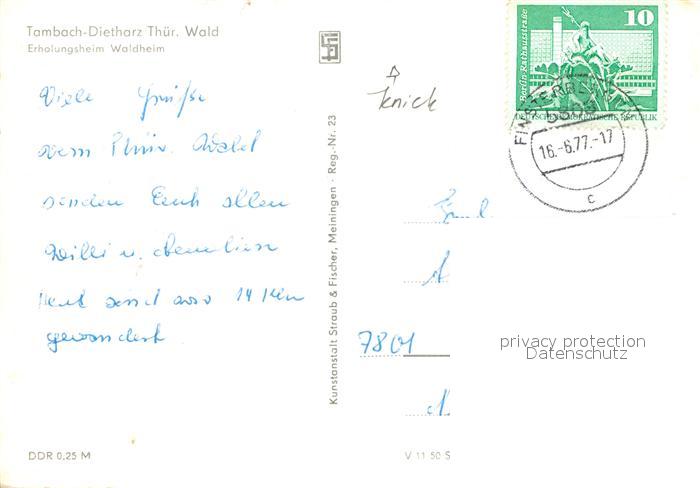 Tambach-Dietharz Thür. Wald
Erholungsheim Waldheim
Viele Grüße
vom Thür. Wald
senden Euch allen
Willi u.
Heut sind wir 14 Km
gewandert
DDR 0,25 M
Kunstanstalt Straub & Fischer, Meiningen · Reg.-Nr. 23
Knick
10
Berlin, Rathausstraße
DEUTSCHE DEMOKRATISCHE REPUBLIK
16.-6.77.-17
c
7801
privacy protection
Datenschutz
V 11 50 S